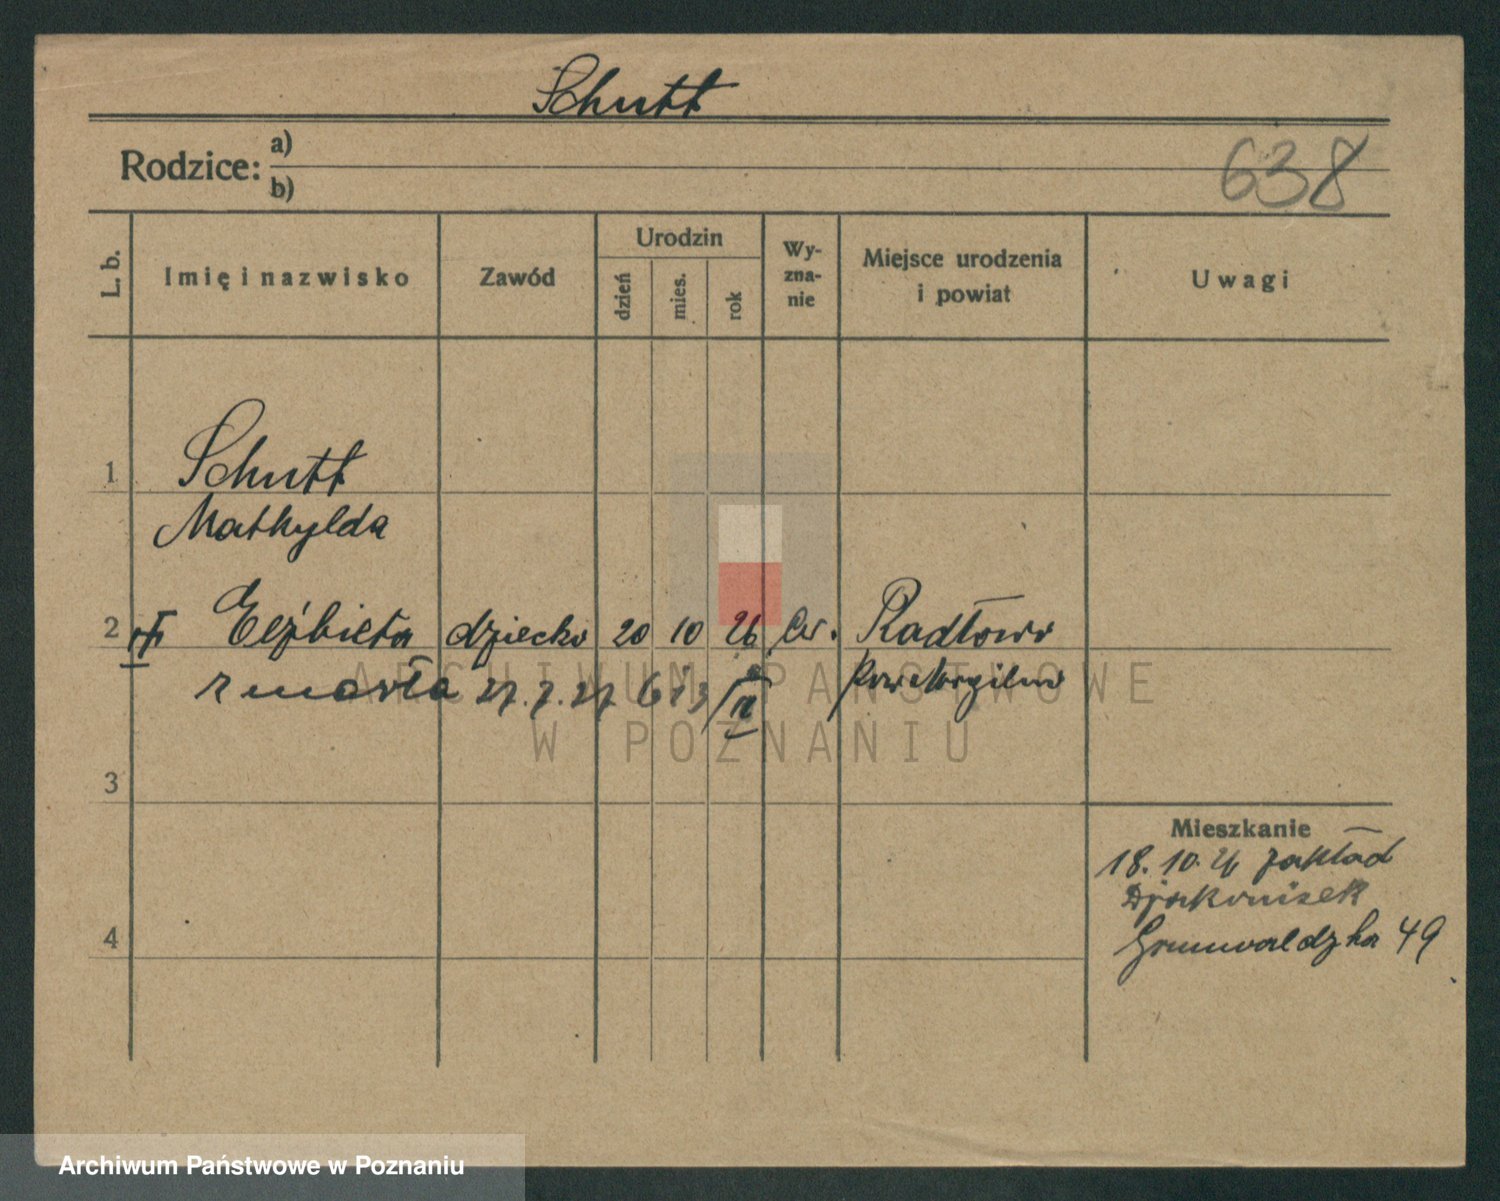 Schutt
Rodzice: a)
b)
638
L. b.
Imię i nazwisko
Zawód
Urodzin
dzień
mies.
rok
Wy-
zna-
nie
Miejsce urodzenia
i powiat
Uwagi
1 Schutt
Mathylda
2 Elżbieta dziecko 20 10 26 Ew. Radłowo
zmarła 27.7.27 613/IV pow Mogilno
3
Mieszkanie
18.10.26 Zakład
Djakonisek
Grunwaldzka 49
4
ARCHIWUM PAŃSTWOWE
W POZNANIU
Archiwum Państwowe w Poznaniu